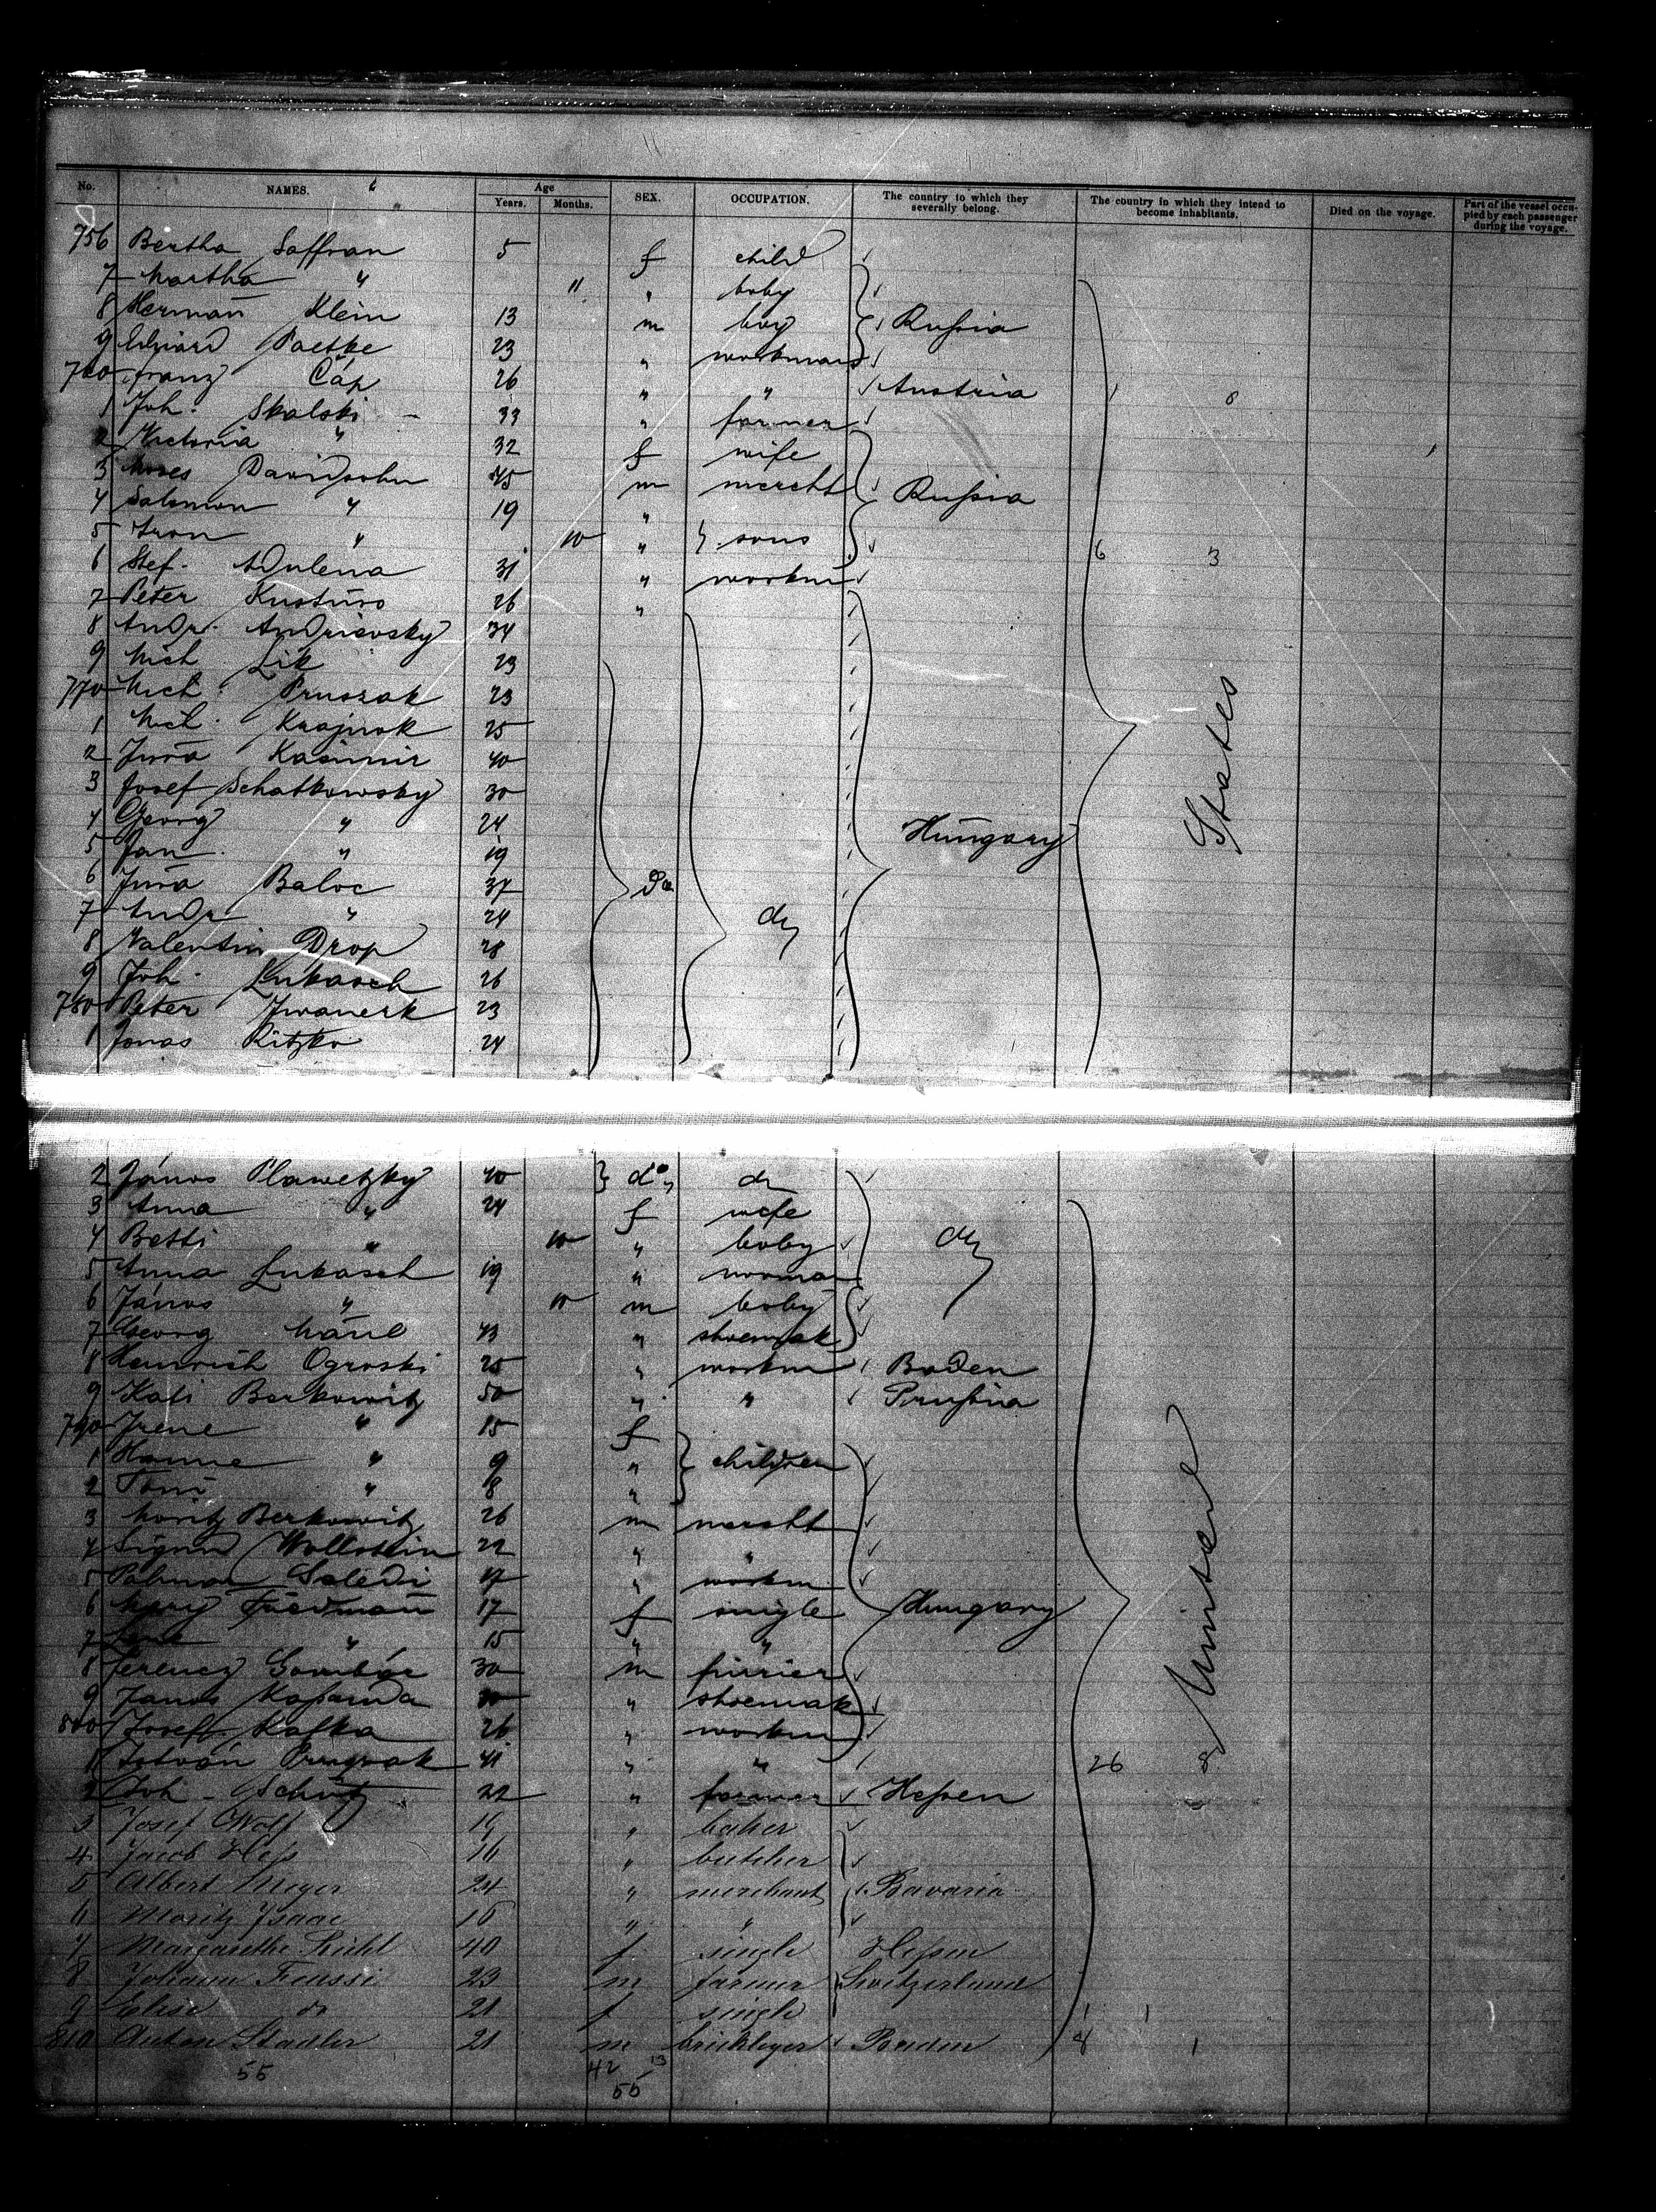 No. NAMES. Age Years. Months. SEX. OCCUPATION. The country to which they severally belong. The country in which they intend to become inhabitants. Died on the voyage. Part of the vessel occupied by each passenger during the voyage.
756 Bertha Saffran 5 f child
7 Martha " 11 " baby
8 Herman Klein 13 m boy Russia
9 Eduard Paetke 23 " workman
760 Franz Cáp 26 " " Austria
1 Joh. Skalski 33 " farmer
2 Victoria " 32 f wife
3 Moses Davidsohn 45 m mercht Russia
4 Salomon " 19 "
5 Aron " 10 " sons 6 3
6 Stef. Adulena 31 " workm
7 Peter Kusturo 26 "
8 Andr. Andrisovsky 34
9 Mich. Lik 23
770 Mich. Pruszak 23
1 Mich. Krajnok 25
2 Jura Kasimir 40
3 Josef Schatkowsky 30
4 Georg " 24 Hungary States
5 Jan " 19
6 Jura Baloc 37 do
7 Andr " 24 do
8 Valentin Drop 28
9 Joh. Lukasch 26
780 Peter Iwanesk 23
1 Jonas Ritzko 24
2 János Plawetzky 40 do do
3 Anna " 24 f wife
4 Betti " 10 " baby do
5 Anna Lukasch 19 " woman
6 János " 10 m baby
7 Georg 43 " shoemak
8 Heinrich Ogroski 25 " workm Baden
9 Kati Berkowitz 50 " " Prussia
790 Irene " 15 f
1 Hanne " 9 " children
2 Toni " 8 "
3 Moritz Berkowitz 26 m mercht
4 Sigmd Wollstein 22 " "
5 17 " workm
6 Mary Friedman 17 f single Hungary United
7 " 15 " "
8 Ferencz Gombár 30 m furrier
9 Janos " shoemak
800 Josef Kafka 26 " workm
1 István 41 " " 26 8
2 Joh. Schütz 22 " farmer Hessen
3 Josef Wolf 19 " baker
4 Jacob Hess 16 " butcher
5 Albert Meyer 24 " merchant Bavaria
6 Moritz Isaac 16 " "
7 Margarethe 40 f single Hessen
8 Johann 23 m farmer Switzerland
9 Elise do 21 f single 1 1
810 Anton Stadler 21 m brickleyer Baden 4 1
55 42 13
55